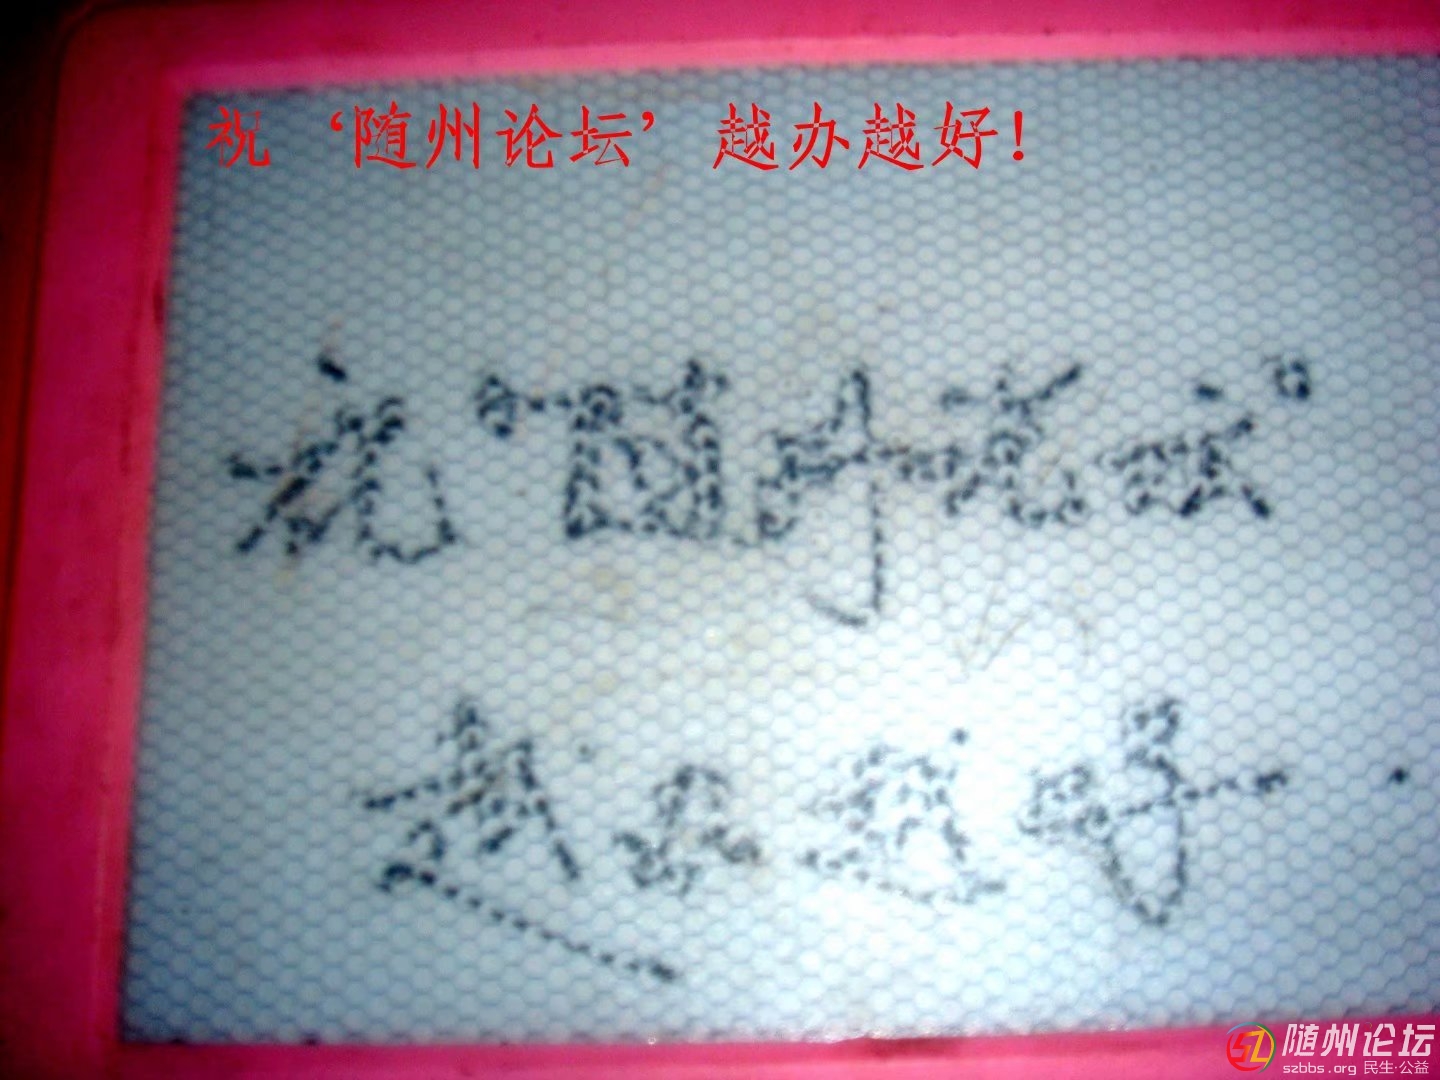 祝‘随州论坛’越办越好!
祝“随州论坛”
越办越好.
随州论坛
szbbs.org 民生·公益